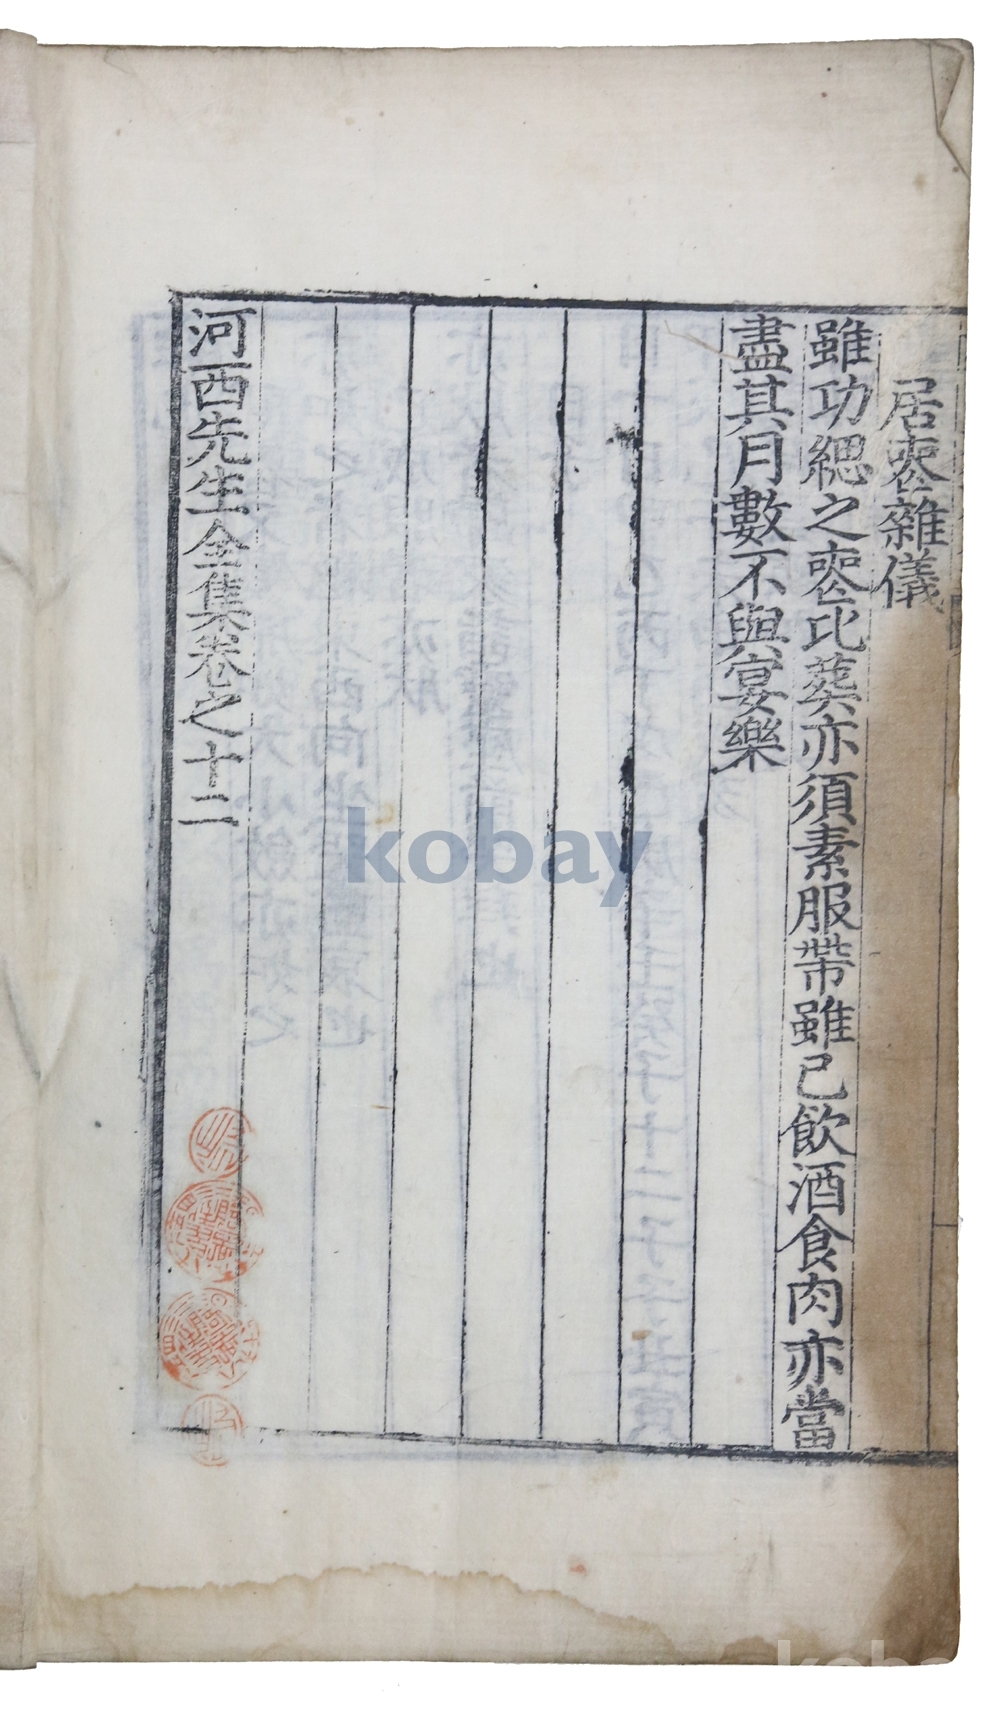 居喪雜儀
雖功緦之喪比葬亦須素服帶雖已飲酒食肉亦當
盡其月數不與宴樂
河西先生全集卷之十二
kobay
koba